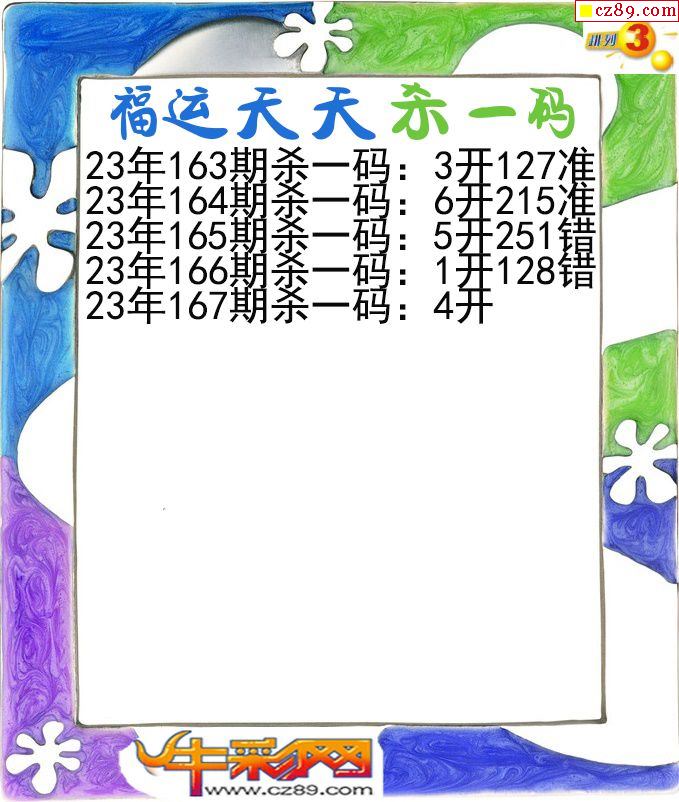 cz89.com
排列3
福运天天杀一码
23年163期杀一码：3开127准
23年164期杀一码：6开215准
23年165期杀一码：5开251错
23年166期杀一码：1开128错
23年167期杀一码：4开
牛彩网
www.cz89.com